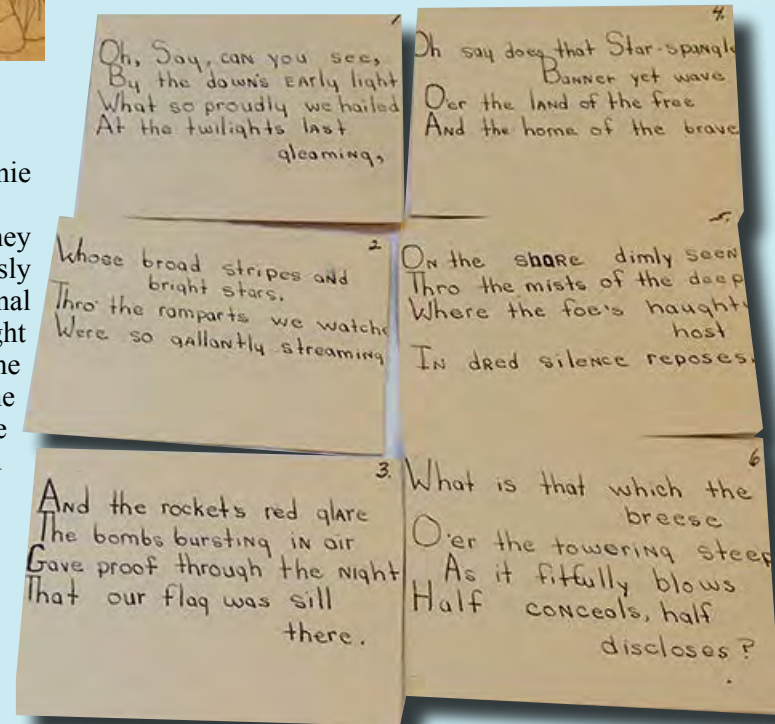 nie
hey
sly
nal
ght
1
Oh, Say, can you see,
By the dawn's early light
What so proudly we hailed
At the twilights last
gleaming,
2
Whose broad stripes and
bright stars.
Thro' the ramparts we watche
Were so gallantly streaming
3.
And the rockets red glare
The bombs bursting in air
Gave proof through the night
That our flag was sill
there.
4.
Oh say does that Star-spangle
Banner yet wave
Oer the land of the free
And the home of the brave
5.
On the shore dimly seen
Thro the mists of the deep
Where the foe's haughty
host
In dred silence reposes.
6
What is that which the
breese
O'er the towering steep
As it fitfully blows
Half conceals, half
discloses?